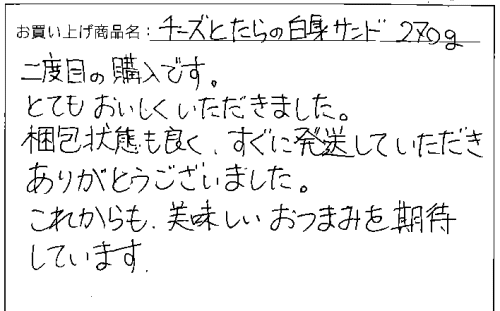 お買い上げ商品名：チーズとたらの白身サンド 270g
二度目の購入です。
とてもおいしくいただきました。
梱包状態も良く、すぐに発送していただき
ありがとうございました。
これからも、美味しいおつまみを期待
しています.